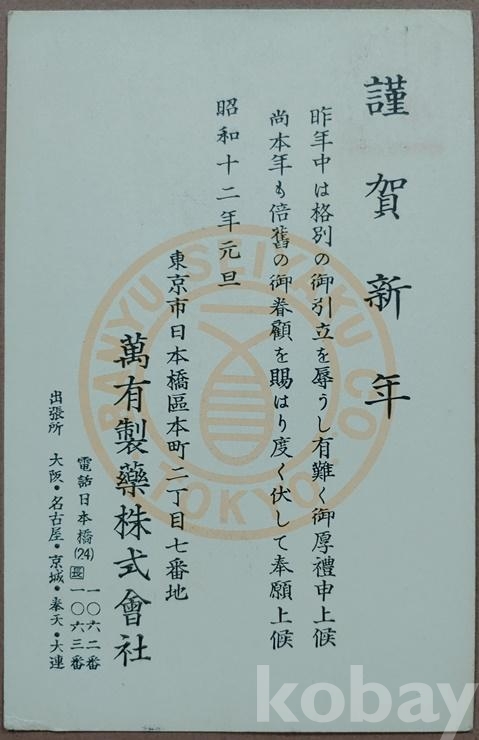 謹賀新年
昨年中は格別の御引立を辱うし有難く御厚禮申上候
尚本年も倍舊の御眷顧を賜はり度く伏して奉願上候
昭和十二年元旦
東京市日本橋區本町二丁目七番地
萬有製藥株式會社
電話日本橋(24)長一〇六二番
一〇六三番
出張所 大阪・名古屋・京城・奉天・大連
BANYU SEIYAKU CO
TOKYO
kobay